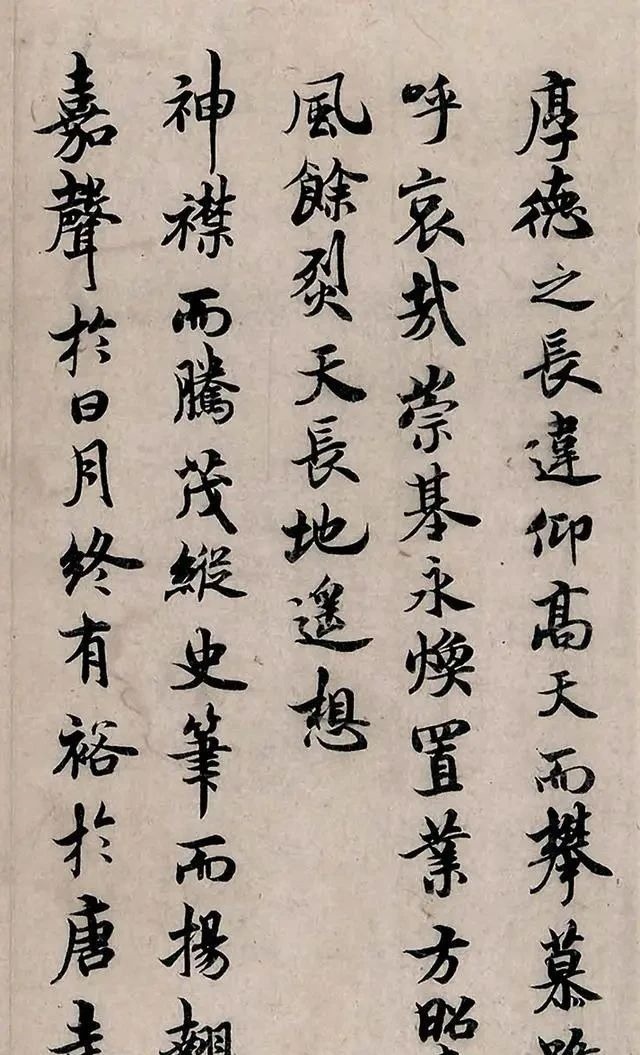 厚德之長違仰高天而攀慕
呼哀哉崇基永煥置業方昭
風餘烈天長地遥想
神襟而騰茂縱史筆而揚翹
嘉聲於日月終有裕於唐